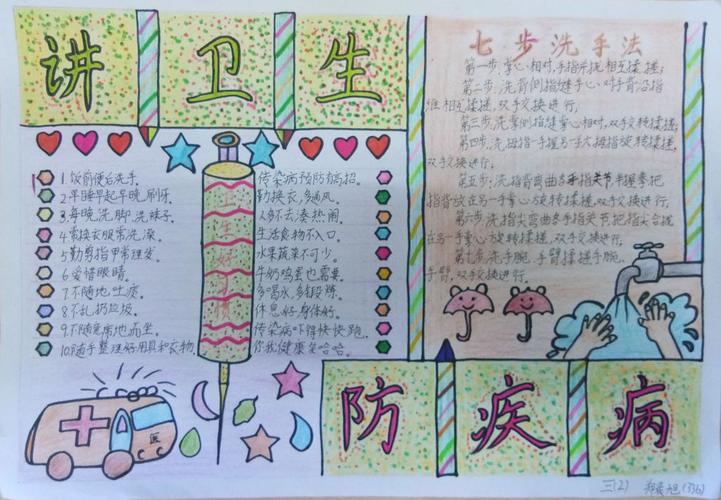 讲卫生
1.饭前便后洗手。
2.早睡早起早晚刷牙。
3.每晚洗脚、洗袜子。
4.常换衣服常洗澡。
5.勤剪指甲常理发。
6.爱惜眼睛。
7.不随地吐痰。
8.不乱扔垃圾。
9.不随意席地而坐。
10.随手整理好用具和衣物。
卫生好习惯
传染病预防有高招。
勤换衣,多通风。
人多不去凑热闹。
生活食物不入口。
水果蔬菜不可少。
牛奶鸡蛋也需要。
多喝水,多锻炼。
休息好,身体好。
传染病吓得快快跑。
你我健康笑哈哈。
七步洗手法
第一步,掌心相对,手指并拢相互揉搓;
第二步,洗背侧指缝手心对手背沿指
缝相互揉搓,双手交换进行;
第三步,洗掌侧指缝掌心相对,双手交叉揉搓;
第四步,洗拇指一手握另一手大拇指旋转揉搓,
双手交换进行;
第五步,洗指背弯曲各手指关节,半握拳把
指背放在另一手掌心旋转揉搓,双手交换进行;
第六步,洗指尖弯曲各手指关节,把指尖合拢
在另一手掌心旋转揉搓,双手交换进行;
第七步,洗手腕、手臂揉搓手腕、
手臂,双手交换进行。
防疾病
三(2) 旭(336)